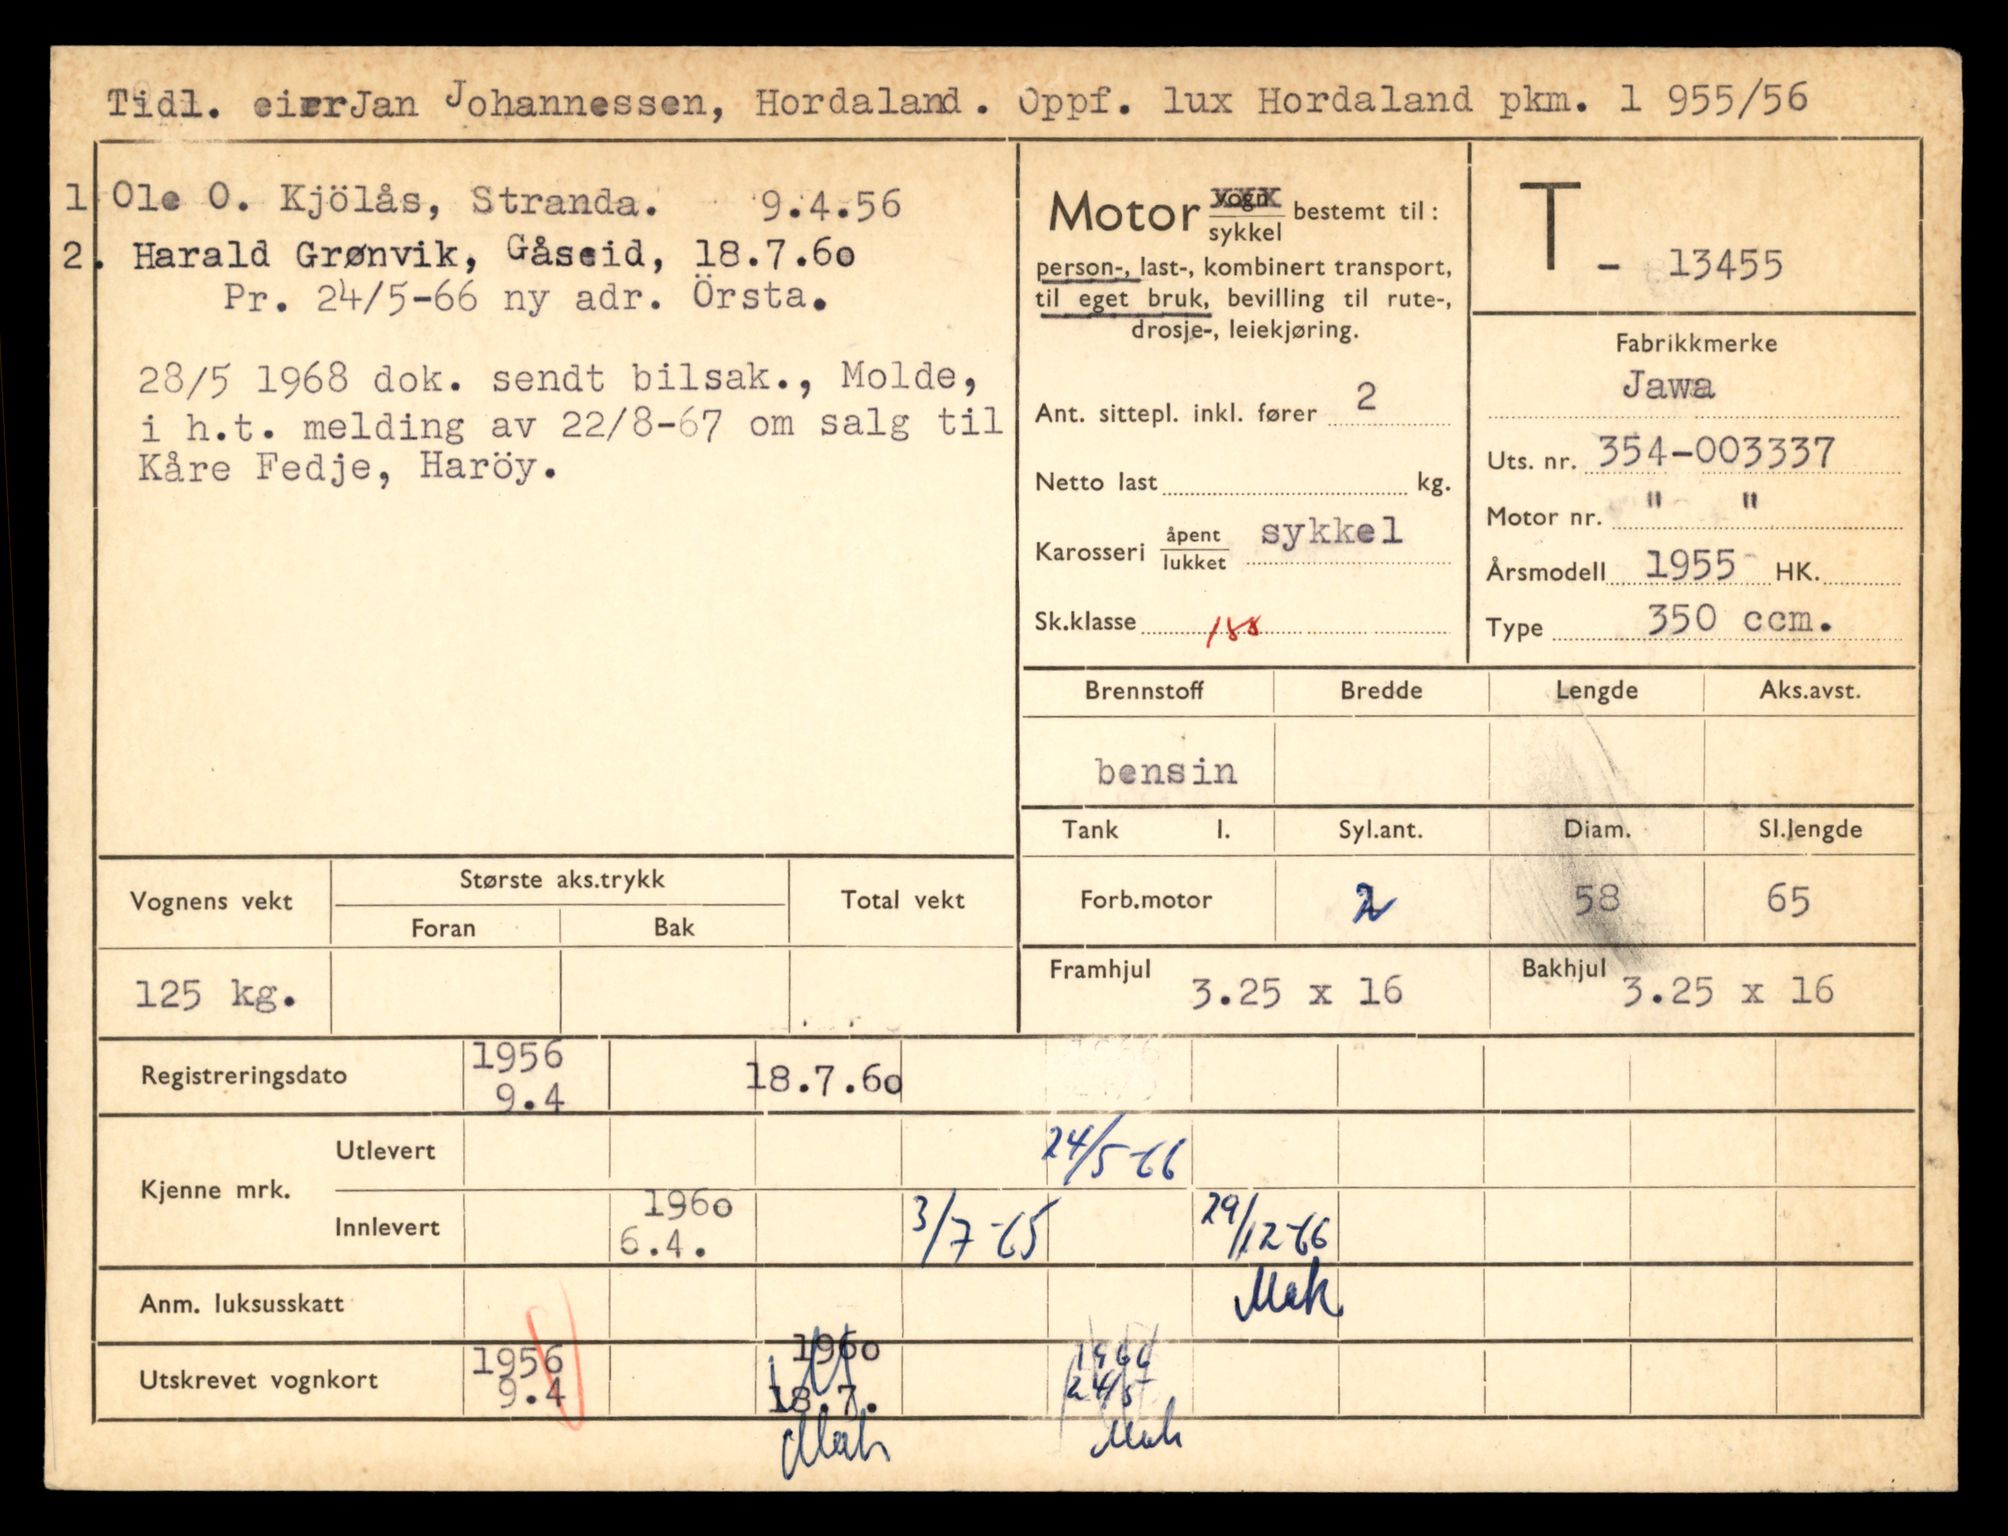 Tidl. eier Jan Johannessen, Hordaland. Oppf. lux Hordaland pkm. 1 955/56
1 Ole O. Kjölås, Stranda. 9.4.56
2. Harald Grønvik, Gåseid, 18.7.60
Pr. 24/5-66 ny adr. Örsta.
28/5 1968 dok. sendt bilsak., Molde,
i h.t. melding av 22/8-67 om salg til
Kåre Fedje, Haröy.
Motor vogn/sykkel bestemt til:
person-, last-, kombinert transport,
til eget bruk, bevilling til rute-,
drosje-, leiekjøring.
Ant. sittepl. inkl. fører 2
Netto last kg.
Karosseri åpent/lukket sykkel
Sk.klasse 188
T - 13455
Fabrikkmerke
Jawa
Uts. nr. 354-003337
Motor nr. " "
Årsmodell 1955 HK.
Type 350 ccm.
Brennstoff Bredde Lengde Aks.avst.
bensin
Tank l. Syl.ant. Diam. Sl.lengde
Forb.motor 2 58 65
Framhjul 3.25 x 16 Bakhjul 3.25 x 16
Vognens vekt Største aks.trykk Total vekt
Foran Bak
125 kg.
Registreringsdato 1956 9.4 18.7.60
Kjenne mrk.
Utlevert 24/5-66
Innlevert 1960 6.4. 3/7-65 29/12-66
Mak
Anm. luksusskatt
Utskrevet vognkort 1956 9.4 1960 18.7. 1966 24/5
Mak Mak